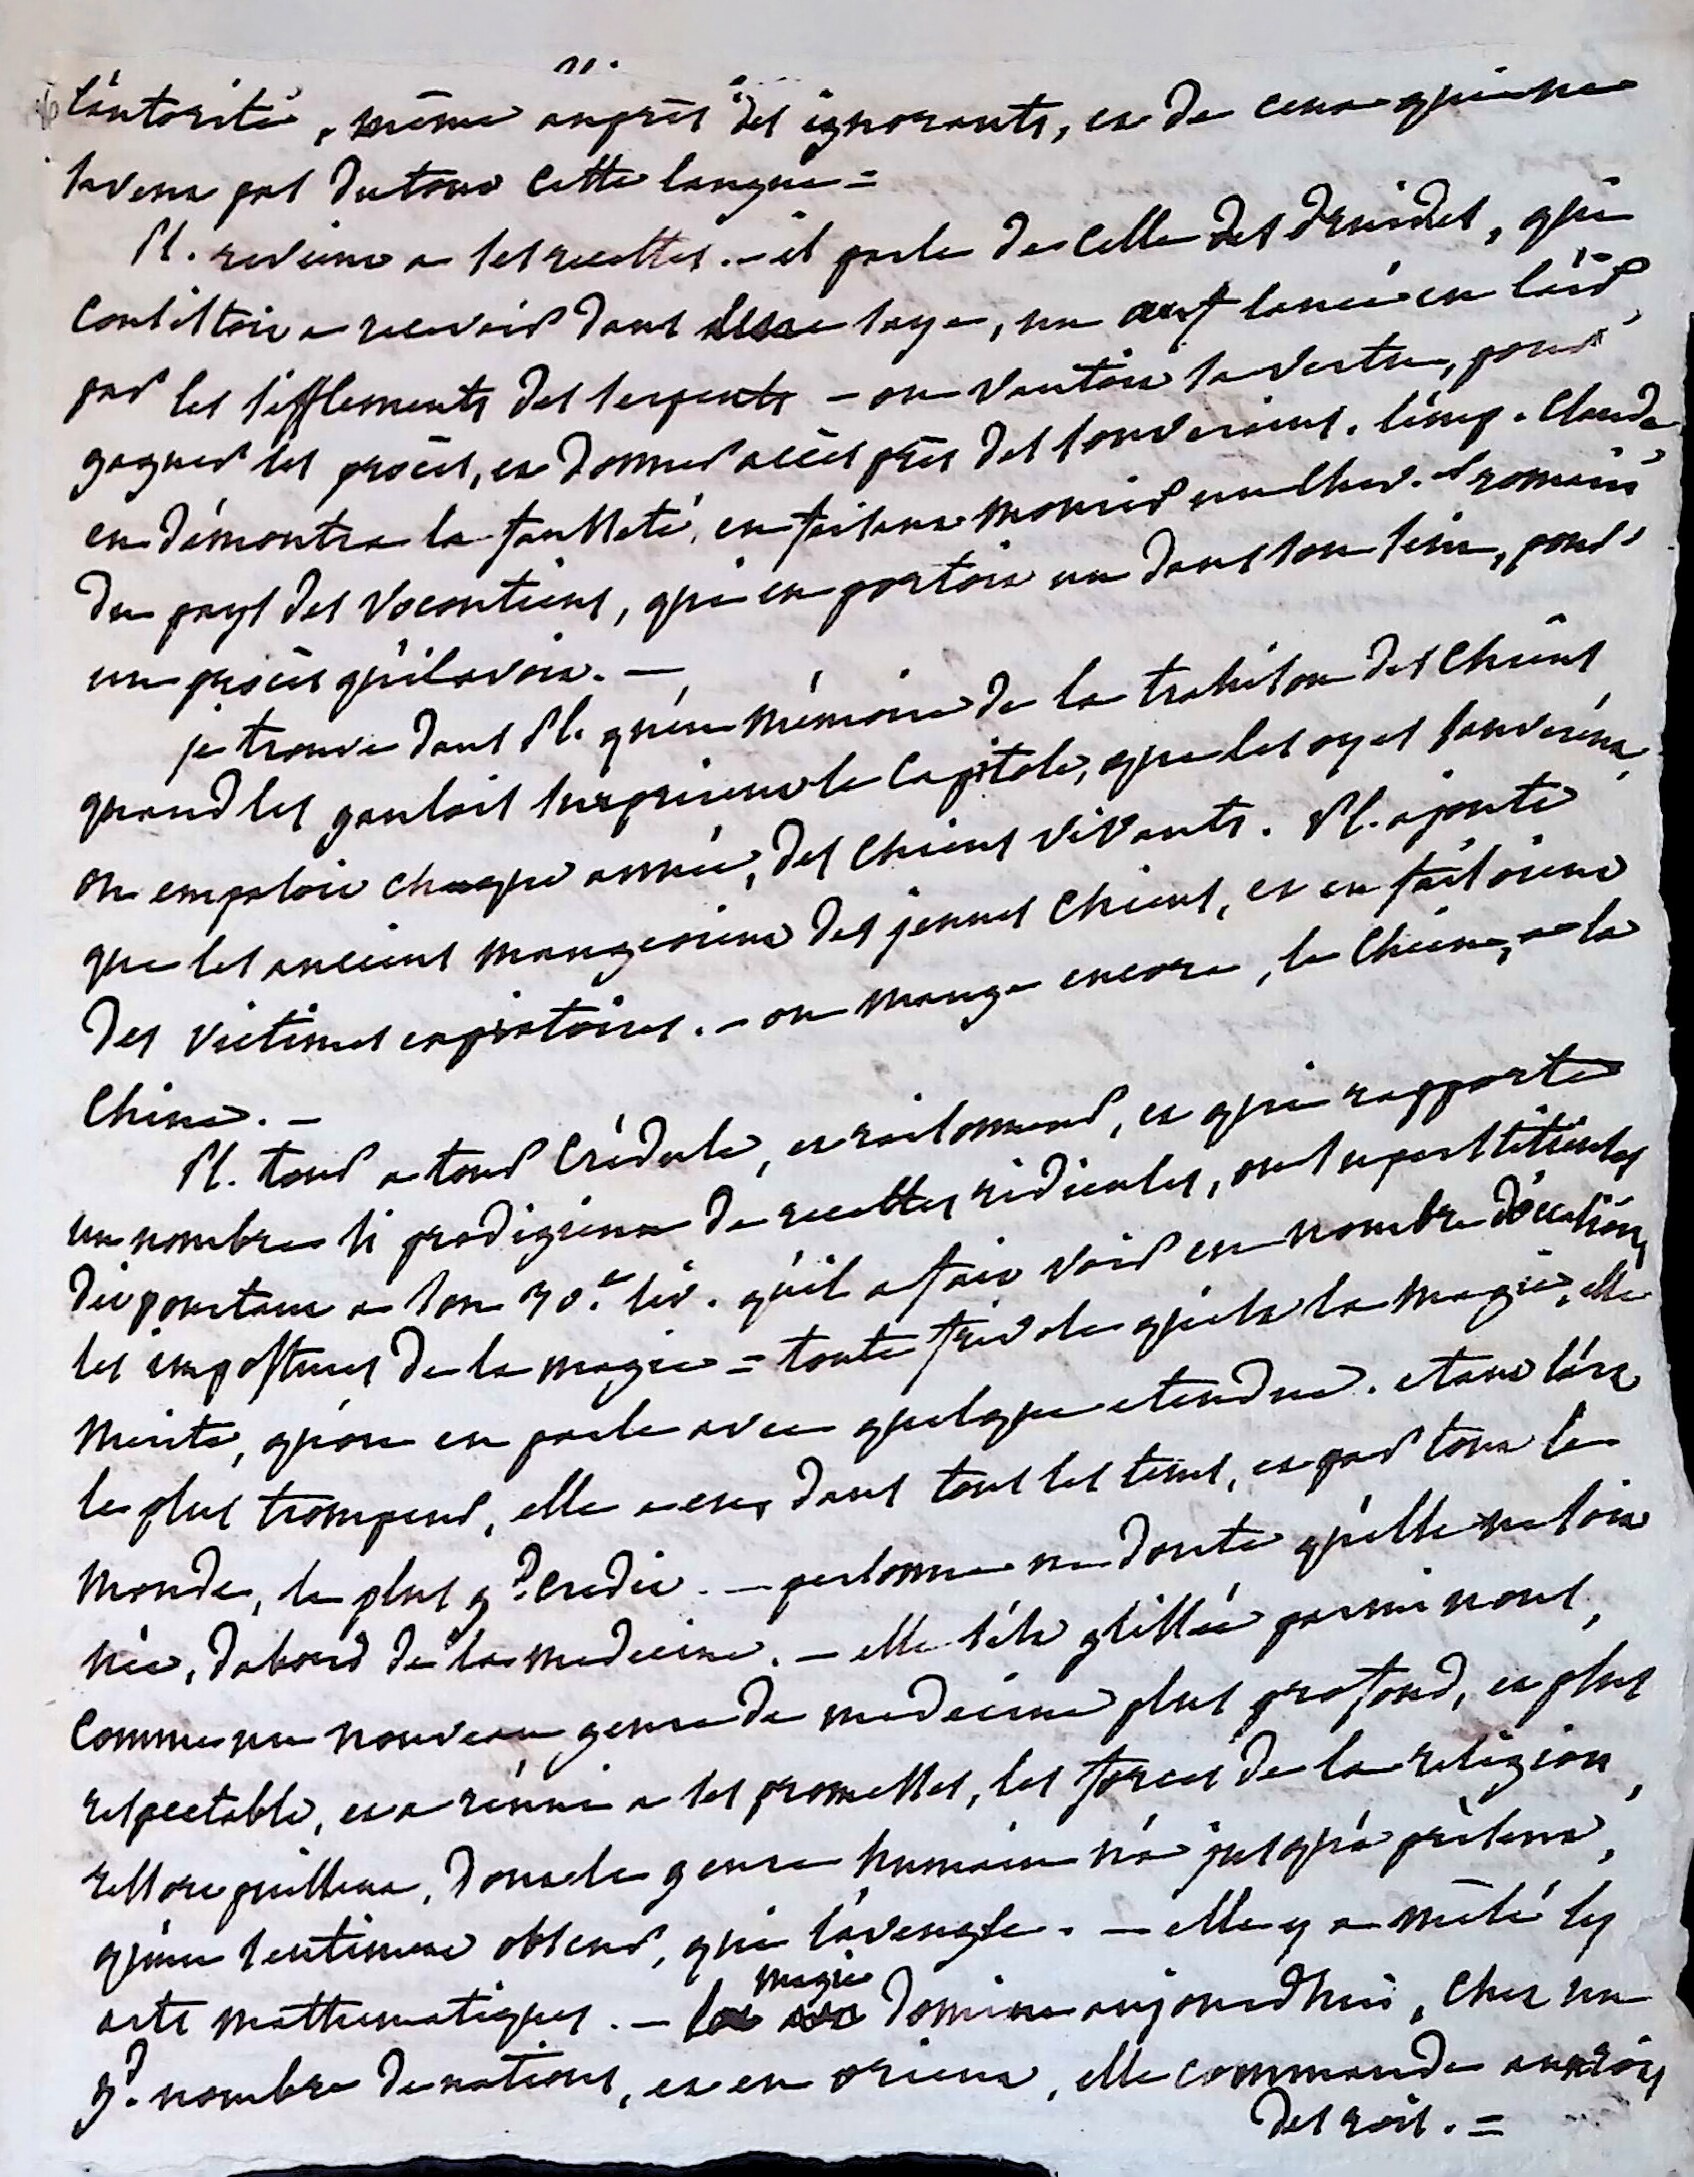 11.
l'autorité, même auprès des ignorants, et de ceux qui ne
savent pas du tout cette langue =
Pl. revient a ses recettes. – il parle de celle des druides, qui
consistoit a recevoir dans une saye, un œuf lancé en l'air
par les sifflements des serpents – on vantoit sa vertu, pour
gagner les procès, et donner accès près des souverains. l'emp. Claude
en démontra la fausseté, en faisant mourir un chev. er romain
du pays des Vocontiens, qui en portoit un dans son sein, pour
un procès qu'il avoit. –
je trouve dans Pl. qu'en mémoire de la trahison des chiens
quand les gaulois surprirent le Capitole, que les oyes sauvèrent
on empaloit chaque année, des chiens vivants. Pl. ajoute
que les anciens mangeoient des jeunes chiens, et en faisoient
des victimes expiatoires. – on mange encore, le chien, a la
Chine. –
Pl. tour a tour crédule, et raisonneur, et qui rapporte
un nombre si prodigieux de recettes ridicules, ou superstitieuses
dit pourtant a son 30.e liv. qu'il a fait voir en nombre d'occasions
les impostures de la magie = toute frivole qu'est la magie, elle
merite, qu'on en parle avec quelque etendue. etant l'art
le plus trompeur, elle a eu, dans tous les tems, et par tout le
monde, le plus gd. credit. – personne ne doute qu'elle ne soit
née, d'abord de la medecine. – elle s'est glissée parmi nous,
comme un nouveau genre de medecine plus profond, et plus
respectable, et a réuni a ses promesses, les forces de la religion,
ressort puissant, dont le genre humain n'a jusqu'a présent,
qu'un sentiment obscur, qui l'aveugle. – elle y a mêlé les
arts mathematiques. – la magie domine aujourdhui, chez un
gd. nombre de nations, et en orient, elle commande aux rois
des rois. =